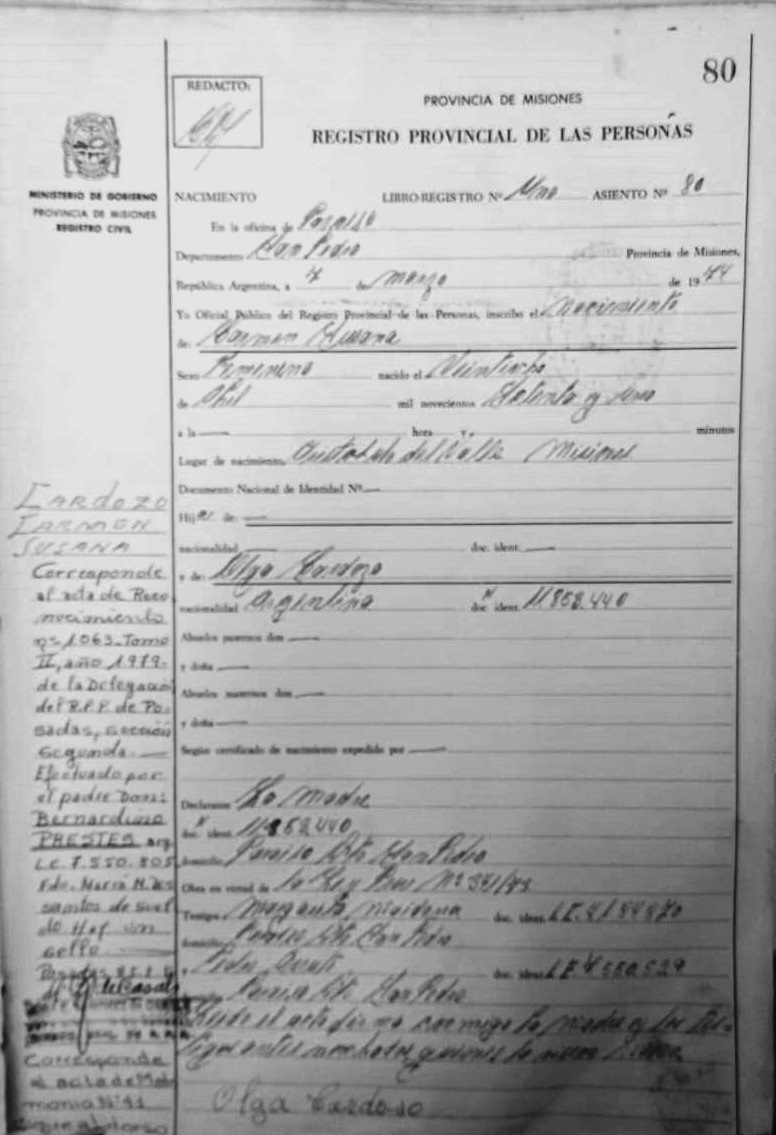 80
REDACTO:
PROVINCIA DE MISIONES
REGISTRO PROVINCIAL DE LAS PERSONAS
MINISTERIO DE GOBIERNO
PROVINCIA DE MISIONES
REGISTRO CIVIL
NACIMIENTO LIBRO-REGISTRO Nº Uno ASIENTO Nº 80
En la oficina de Paraiso
Departamento San Pedro Provincia de Misiones,
República Argentina, a de marzo de 19
Yo Oficial Público del Registro Provincial de las Personas, inscribo el Nacimiento
de: Carmen Susana
Sexo Femenino nacido el Veintiocho
de mil novecientos Setenta y Uno
a la hora y minutos
Lugar de nacimiento, Aristobulo del Valle Misiones
Documento Nacional de Identidad Nº
Hij de:
nacionalidad doc. ident.
y de: Olga Cardozo
nacionalidad Argentina doc. ident. 11.858.440
Abuelos paternos don
y doña
Abuelos maternos don
y doña
Según certificado de nacimiento expedido por
Declarante La Madre
doc. ident. 11.858.440
domicilio Paraiso Dto San Pedro
Obra en virtud de la Ley Prov Nº
Testigos Margarita Maidana doc. ident. L.E.
domicilio Paraiso Dto San Pedro
y Pedro doc. ident. L.E.
Paraiso Dto San Pedro
el acta firma conmigo la madre y los tes-
tigos antes nombrados quienes
Olga Cardoso
CARDOZO
CARMEN
SUSANA
Corresponde
al acta de Reco
nocimiento
nº 1063-Tomo
II, año 1979-
de la Delegación
del R.P.P. de Po-
sadas, sección
segunda.
Efectuado por
el padre Don:
Bernardino
PRESTES arg.
L.E. 7.550.805
Fdo. María
Hay un
sello
Posadas
Corresponde
al acta de Matri
monio Nº 41